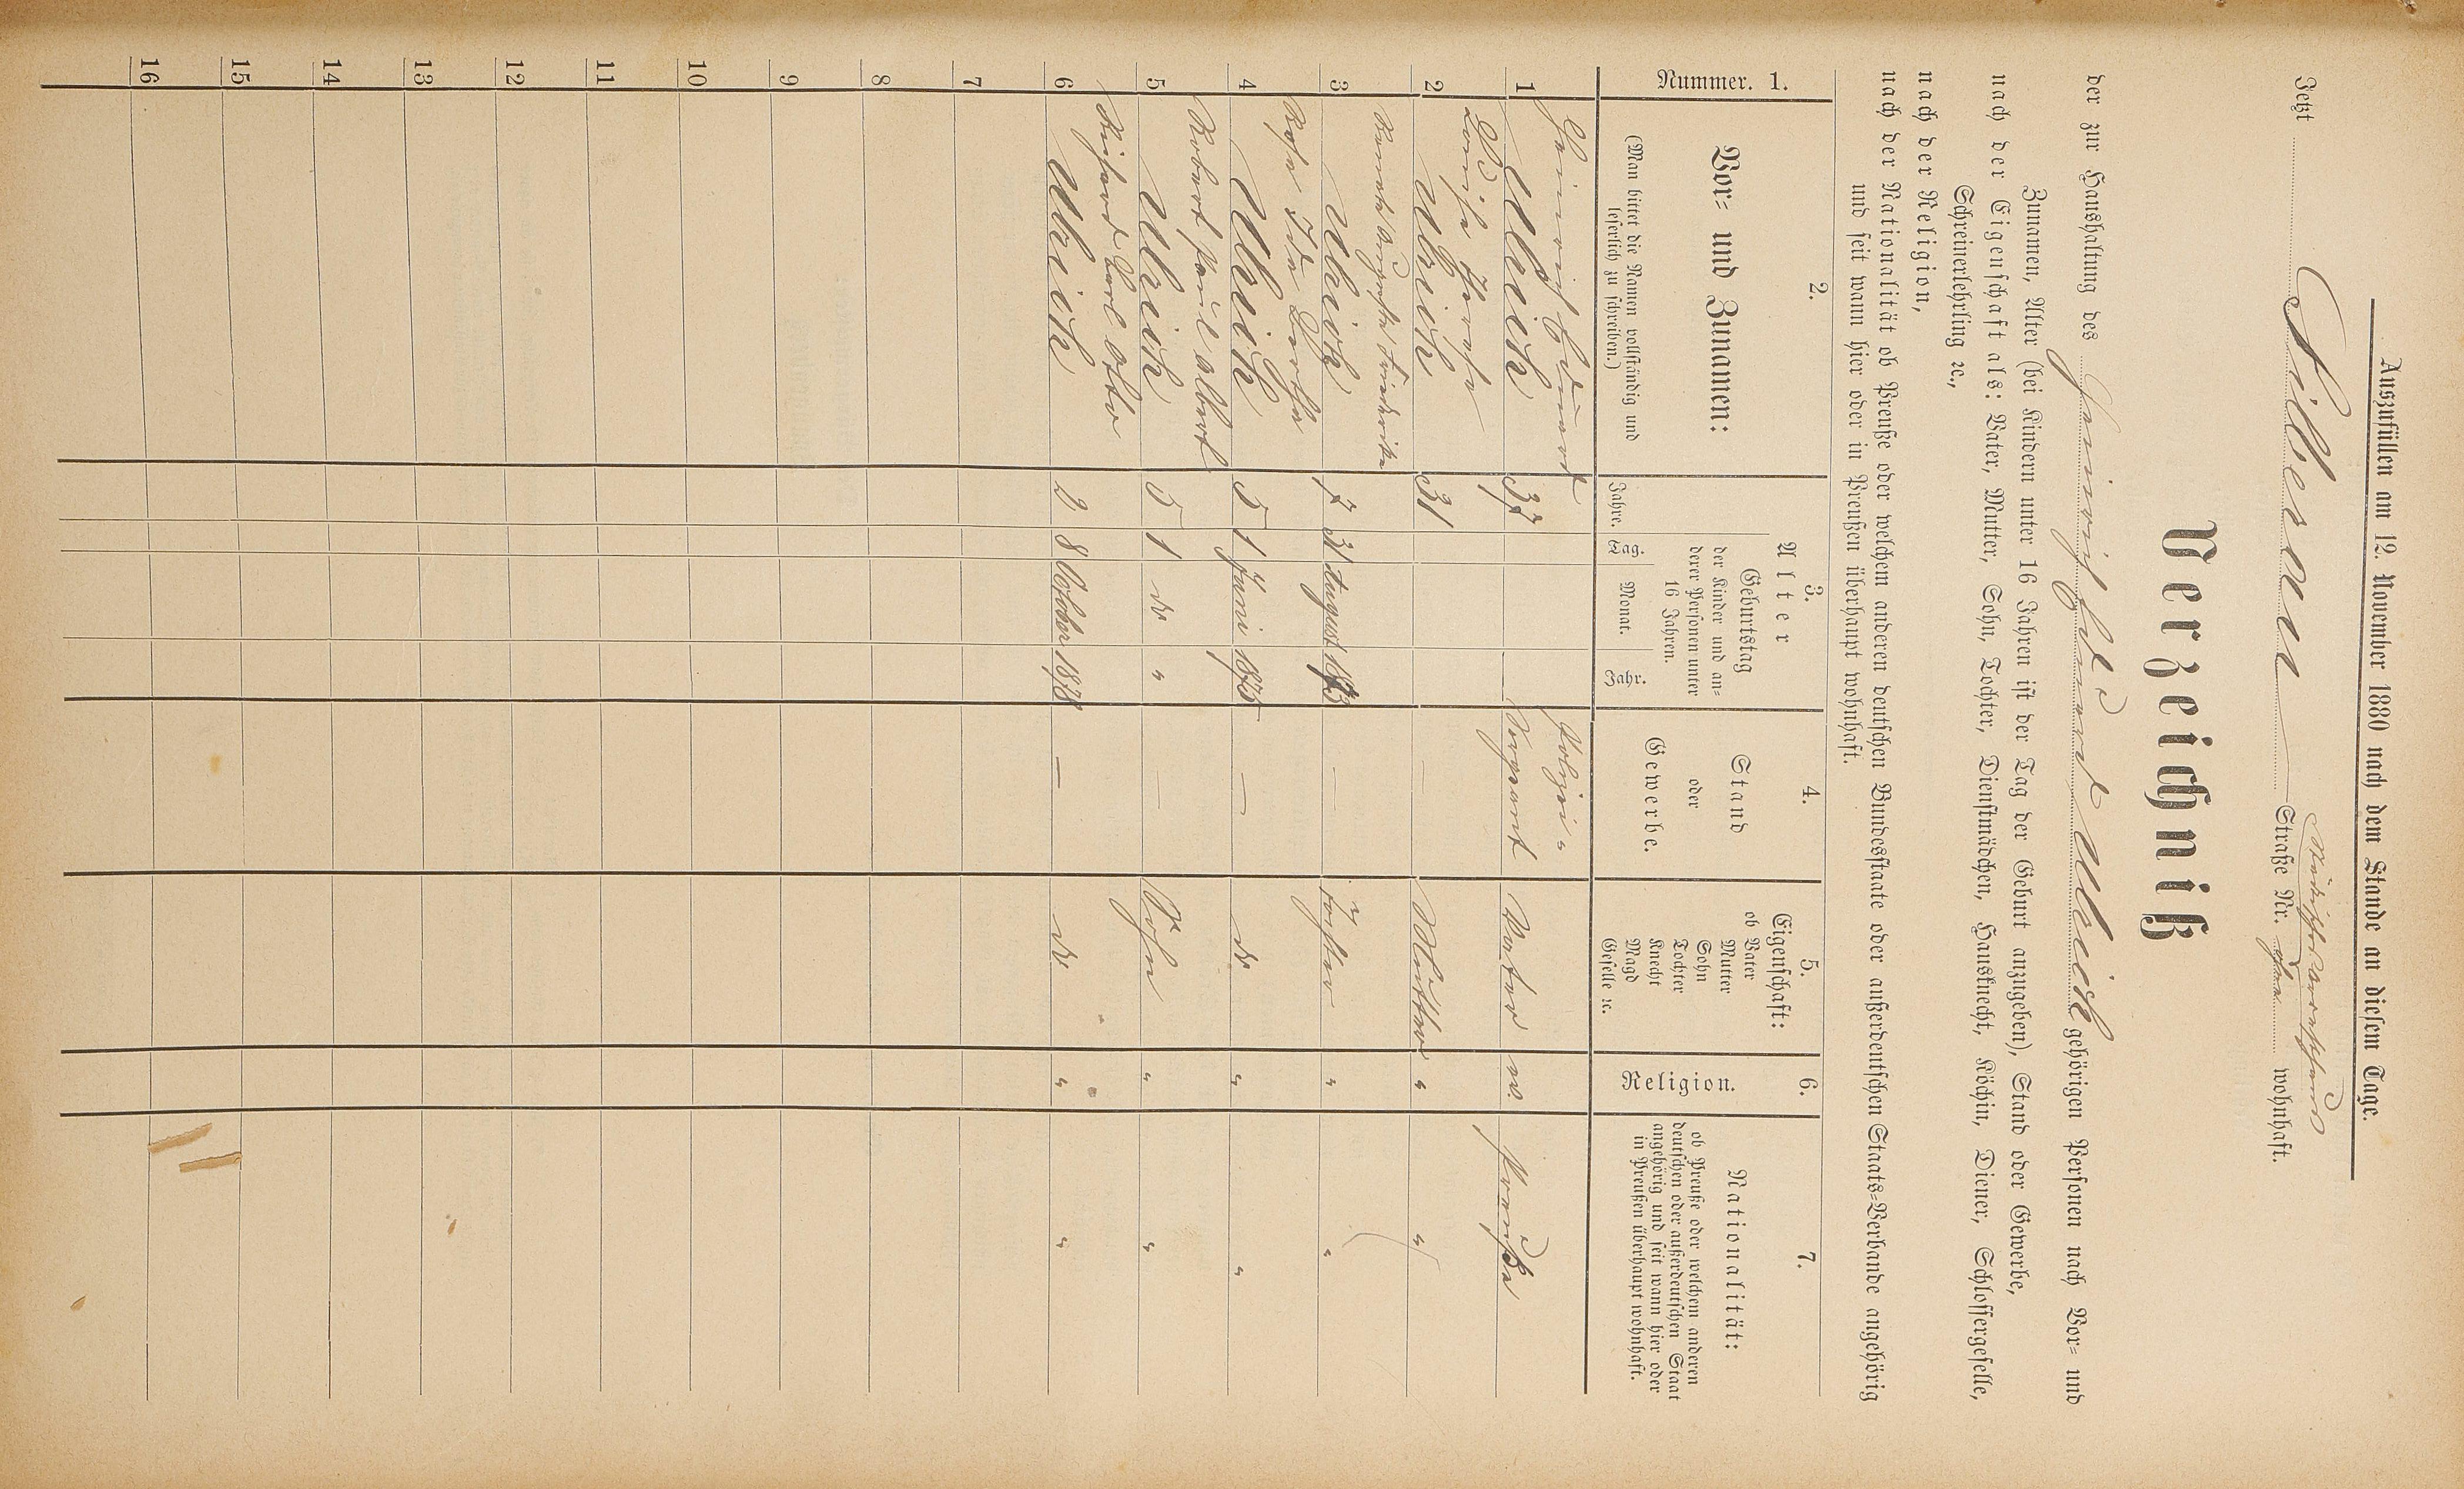 Auszufüllen am 12. November 1880 nach dem Stande an diesem Tage.
Jetzt Silberau Straße Nr. ohne wohnhaft.
Verzeichniß
der zur Haushaltung des Heinrich Eduard Ulrich gehörigen Personen nach Vor- und
Zunamen, Alter (bei Kindern unter 16 Jahren ist der Tag der Geburt anzugeben), Stand oder Gewerbe,
nach der Eigenschaft als: Vater, Mutter, Sohn, Tochter, Dienstmädchen, Hausknecht, Köchin, Diener, Schlossergeselle,
Schreinerlehrling ꝛc.,
nach der Religion,
nach der Nationalität ob Preuße oder welchem anderen deutschen Bundesstaate oder außerdeutschen Staats-Verbande angehörig
und seit wann hier oder in Preußen überhaupt wohnhaft.
Nummer. 1.
2.
Vor- und Zunamen:
(Man bittet die Namen vollständig und
leserlich zu schreiben.)
3.
Alter
Jahre.
Geburtstag
der Kinder und an-
derer Personen unter
16 Jahren.
Tag. Monat. Jahr.
4.
Stand
oder
Gewerbe.
5.
Eigenschaft:
ob Vater
Mutter
Sohn
Tochter
Knecht
Magd
Geselle ꝛc.
6.
Religion.
7.
Nationalität:
ob Preuße oder welchem anderen
deutschen oder außerdeutschen Staat
angehörig und seit wann hier oder
in Preußen überhaupt wohnhaft.
Heinrich Eduard Polizei-
1 Ulrich 37 Sergeant Vater ev. Preuße
Louise
2 Ulrich 31 — Mutter " "
Auguste Friederike
3 Ulrich 7 31 August 1873 — Tochter " "
Rosa Ida Bertha
4 Ulrich 5 1 Juni 1875 — do " "
Robert Paul Albert
5 Ulrich 5 1 do " — Sohn " "
Richard Carl Otto
6 Ulrich 2 8 October 1878 — do " "
7
8
9
10
11
12
13
14
15
16